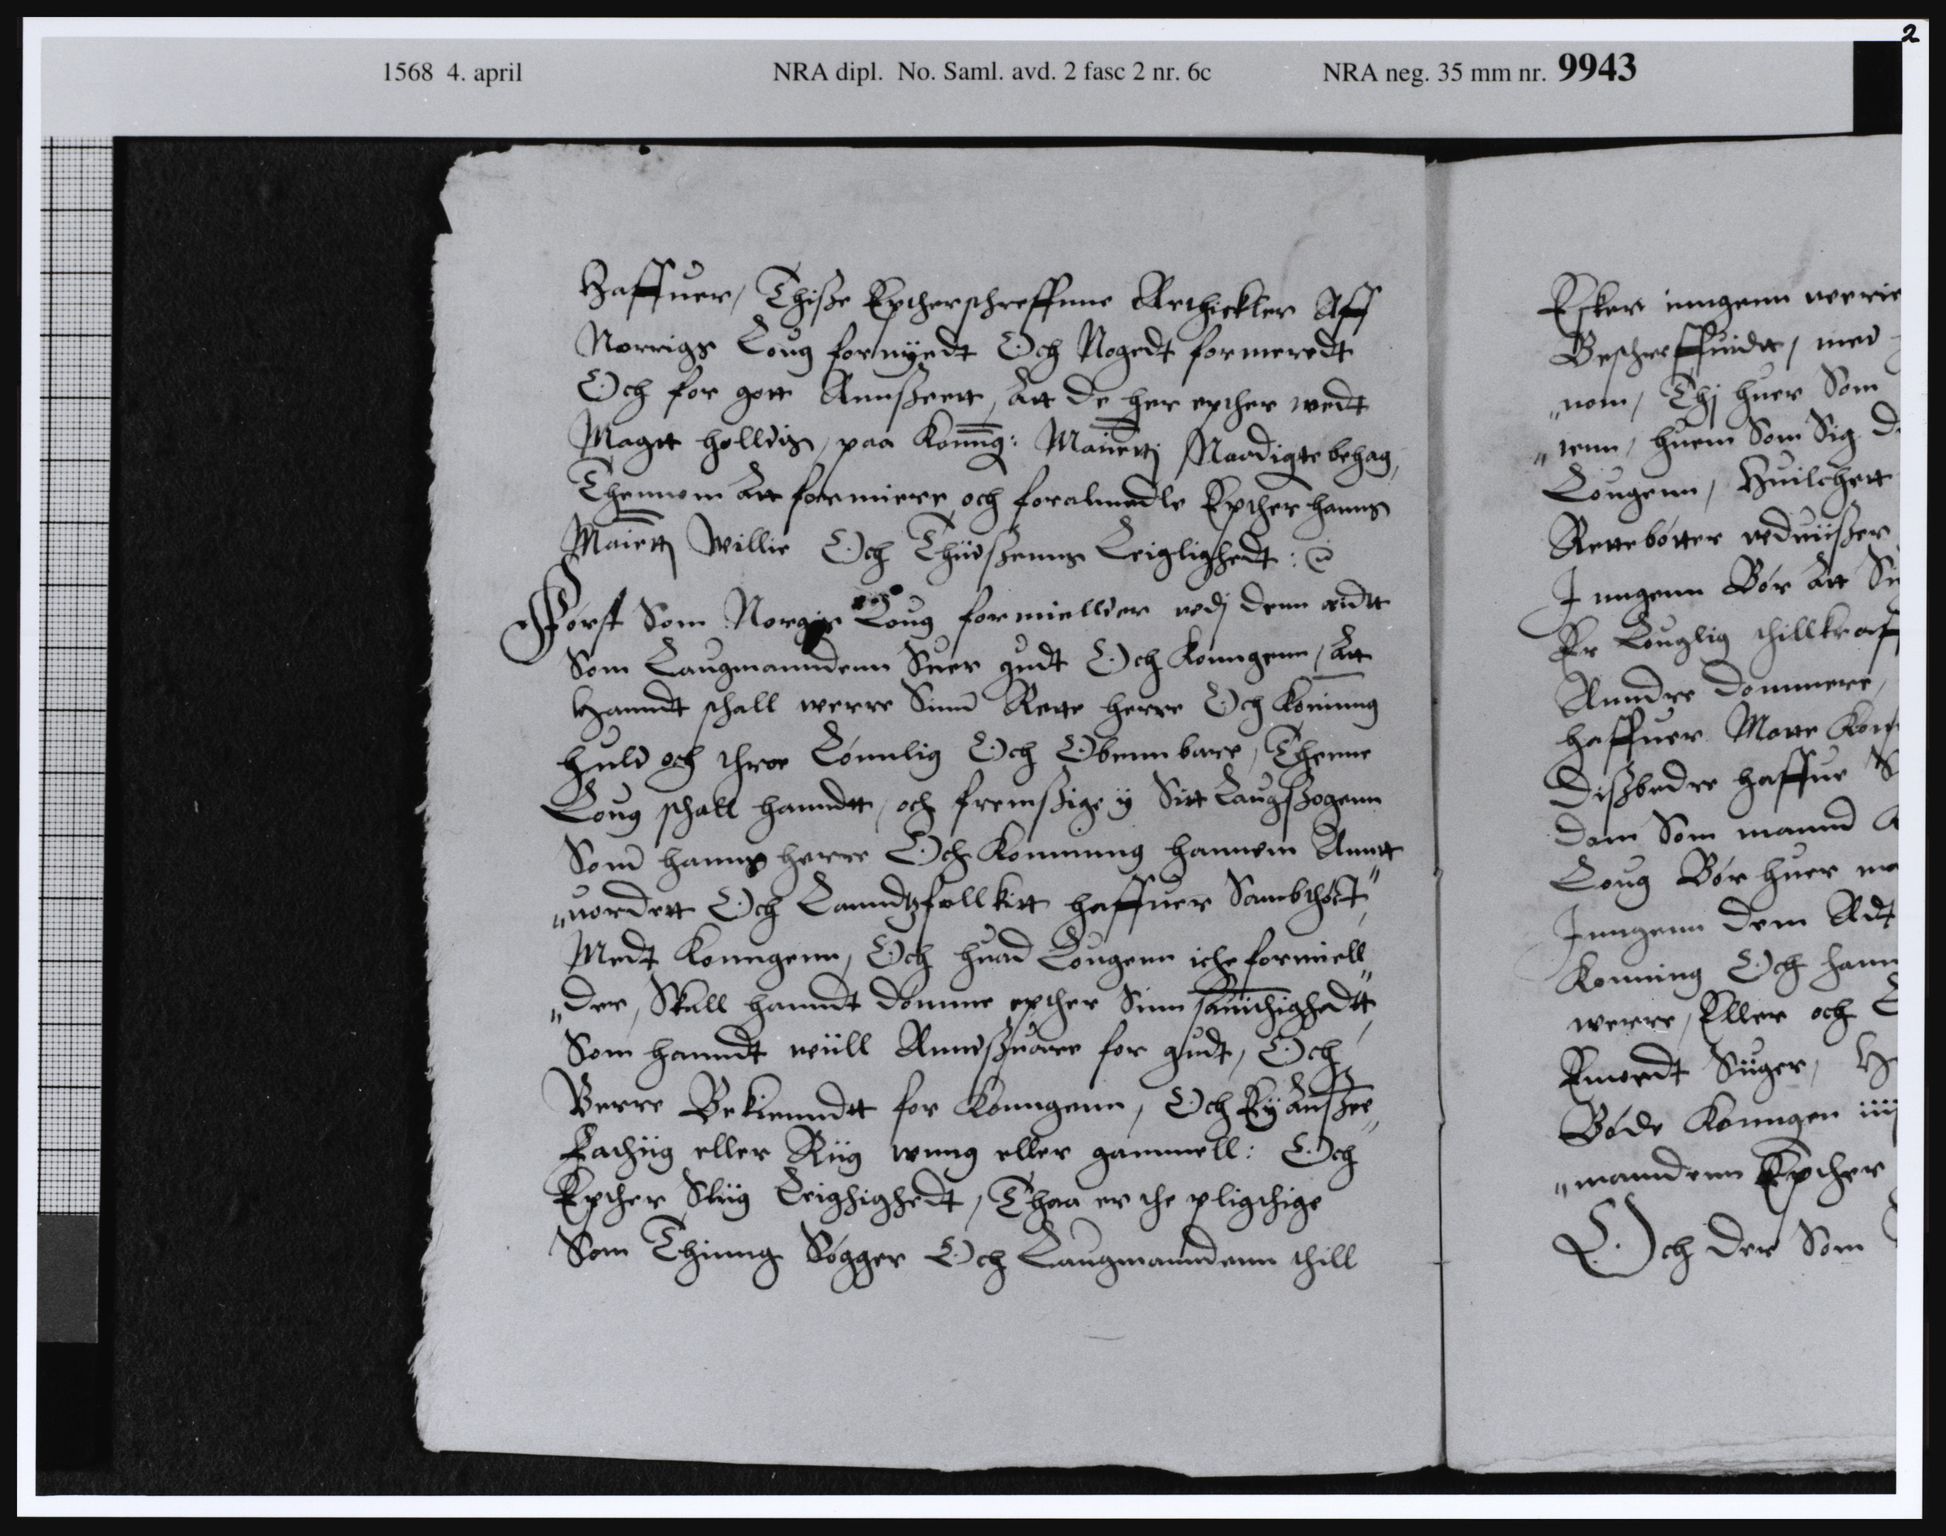 2
1568 4. april NRA dipl. No. Saml. avd. 2 fasc 2 nr. 6c NRA neg. 35 mm nr. 9943
Haffuer, Thisse Eptherschreffnne Arthickler Aff
Norrigs Loug fornyedt Och Nogedt formeredt
Och for gott Annsseett, att de her epther wedt
Magtt holldis, paa Konng: Maiettj Naadigte behag,
Thennom att formiere, och foralmedle Epther hanns
Maiettj Willie Och Thiidssenns Leiglighedt:
Fförst Som Norgis Loug formiellder vdj denn eedtt
Som Laugmanndenn Suer gudt Och Konngenn, att
Hanndt schall werre Sinn Rette herre Och Konning
huld och throe Lönnlig Och Obennbare, Thenne
Loug schall hanndtt, och fremssige ij Sitt Laugssogenn
Som hanns herre Och Konnung hannom Anntt
"uordett Och Lanndtzfollkitt haffuer Sambthöct"
Medt Konngenn, Och huad Lougenn iche formiell"
"der, Skall hanndt dömme epther Sinn samuithighedtt
Som hanndt wiill Anndssuare for gudt, Och
Verre Bekienndtt for Konngenn, Och Ey ansee"
Fachiig eller Riig wnng eller gammell: Och
Epther Sliig Leighighedt, Thaa er the pligthige
Som Thinng Sögger Och Laugmanndenn thill
Efker inngenn
Beschreffuidtt, med
"nom, Thj huer Som
"enn, huem Som Sig
Lougenn, Huilchett
Rettebötter vduiisser
Inngenn Bör att
Er Louglig thillkraf
Anndre dommere,
haffuer Motte
dissbedre haffue
dom Som mannd
Loug Bör huer
Inngenn dem Adt
Konning Och hann
werre, Eller och
Emodt Siiger, H
Böde Konngen iiij
"manndenn Epther
Och der Som